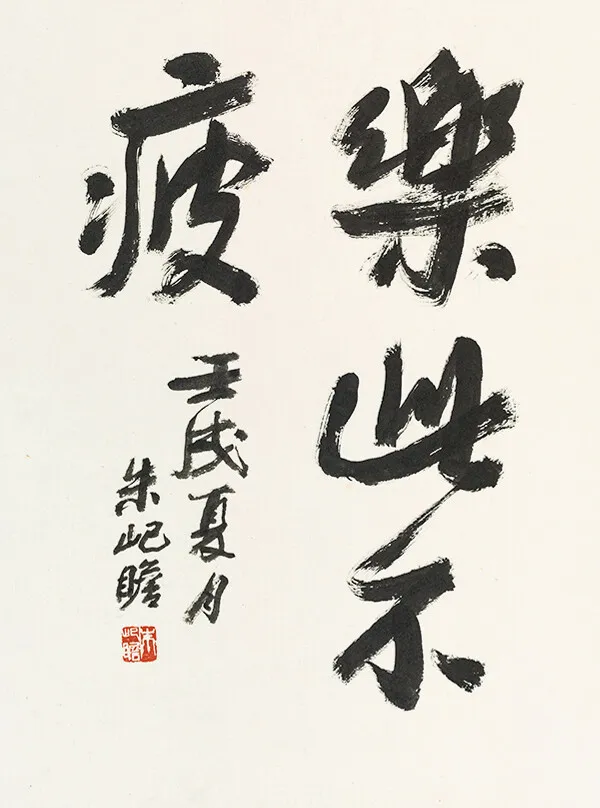 樂此不
疲
壬戌夏月
朱屺瞻
朱屺瞻